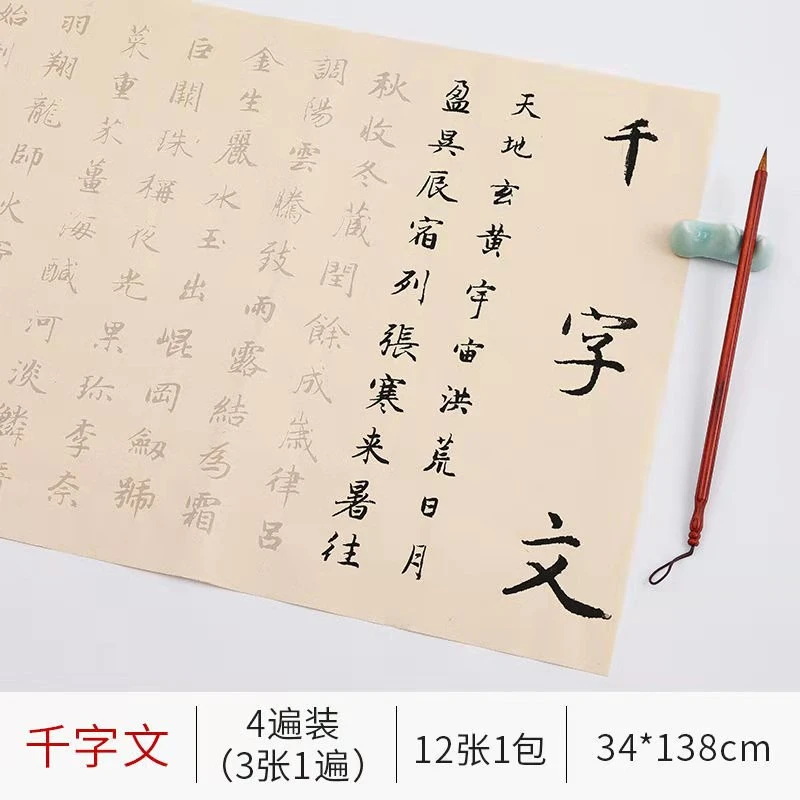 千字文
天地玄黄宇宙洪荒日月
盈昃辰宿列張寒来暑往
秋收冬蔵閏餘成歲律呂
調陽雲騰致雨露結為霜
金生麗水玉出崐岡劔號
巨闕珠稱夜光果珎李奈
菜重芥薑海鹹河淡鱗
羽翔龍師火
始制
千字文
4遍装
（3张1遍）
12张1包
34*138cm